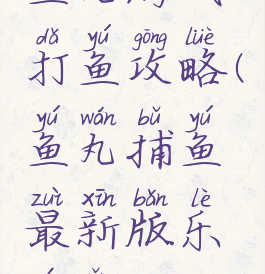 dǎ yú gōng lüè
打鱼攻略(
yú wán bǔ yú
鱼丸捕鱼
zuì xīn bǎn lè
最新版乐